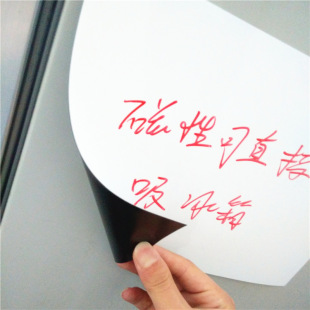 磁性可直接
吸冰箱